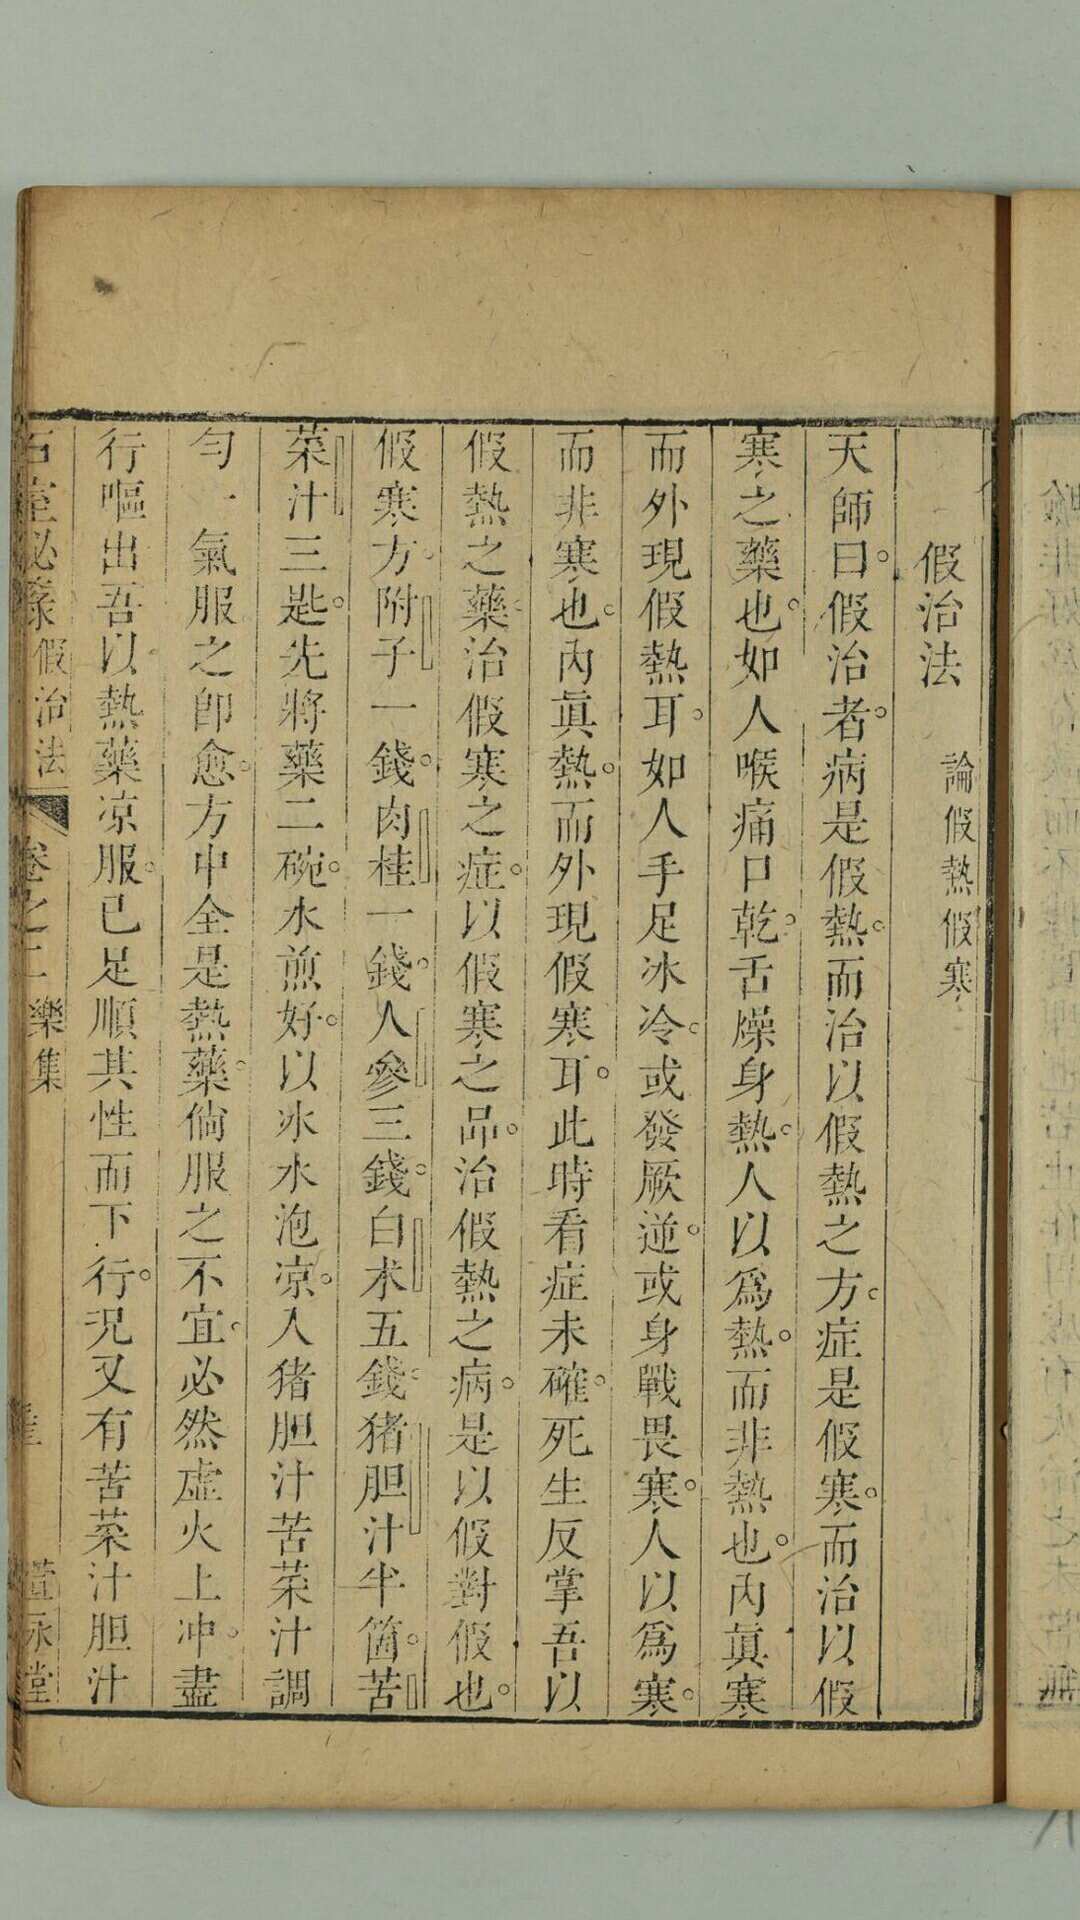 假治法　論假熱假寒
天師曰。假治者。病是假熱。而治以假熱之方。症是假寒。而治以假
寒之藥也。如人喉痛口乾。舌燥身熱。人以爲熱。而非熱也。內眞寒
而外現假熱耳。如人手足冰冷。或發厥逆。或身戰畏寒。人以爲寒。
而非寒也。內眞熱。而外現假寒耳。此時看症未確。死生反掌。吾以
假熱之藥。治假寒之症。以假寒之品。治假熱之病。是以假對假也。
假寒方。附子一錢。肉桂一錢。人參三錢。白朮五錢。猪胆汁半箇。苦
菜汁三匙。先將藥二碗。水煎好。以冰水泡凉。入猪胆汁苦菜汁調
勻。一氣服之即愈。方中全是熱藥。倘服之不宜。必然虛火上冲。盡
行嘔出。吾以熱藥凉服。已足順其性而下行。况又有苦菜汁胆汁
石室必彔 假治法 卷之二樂集